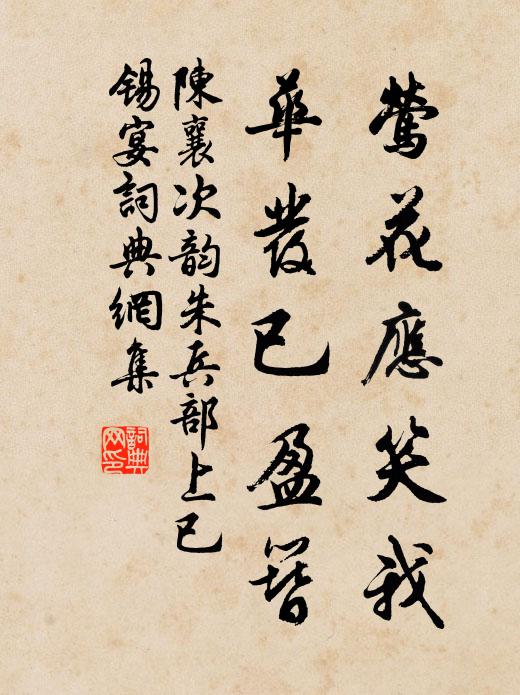 鶯花應笑我
華發已盈簪
陳襄次韵朱兵部上巳
錫宴詞典網集
詞典网印